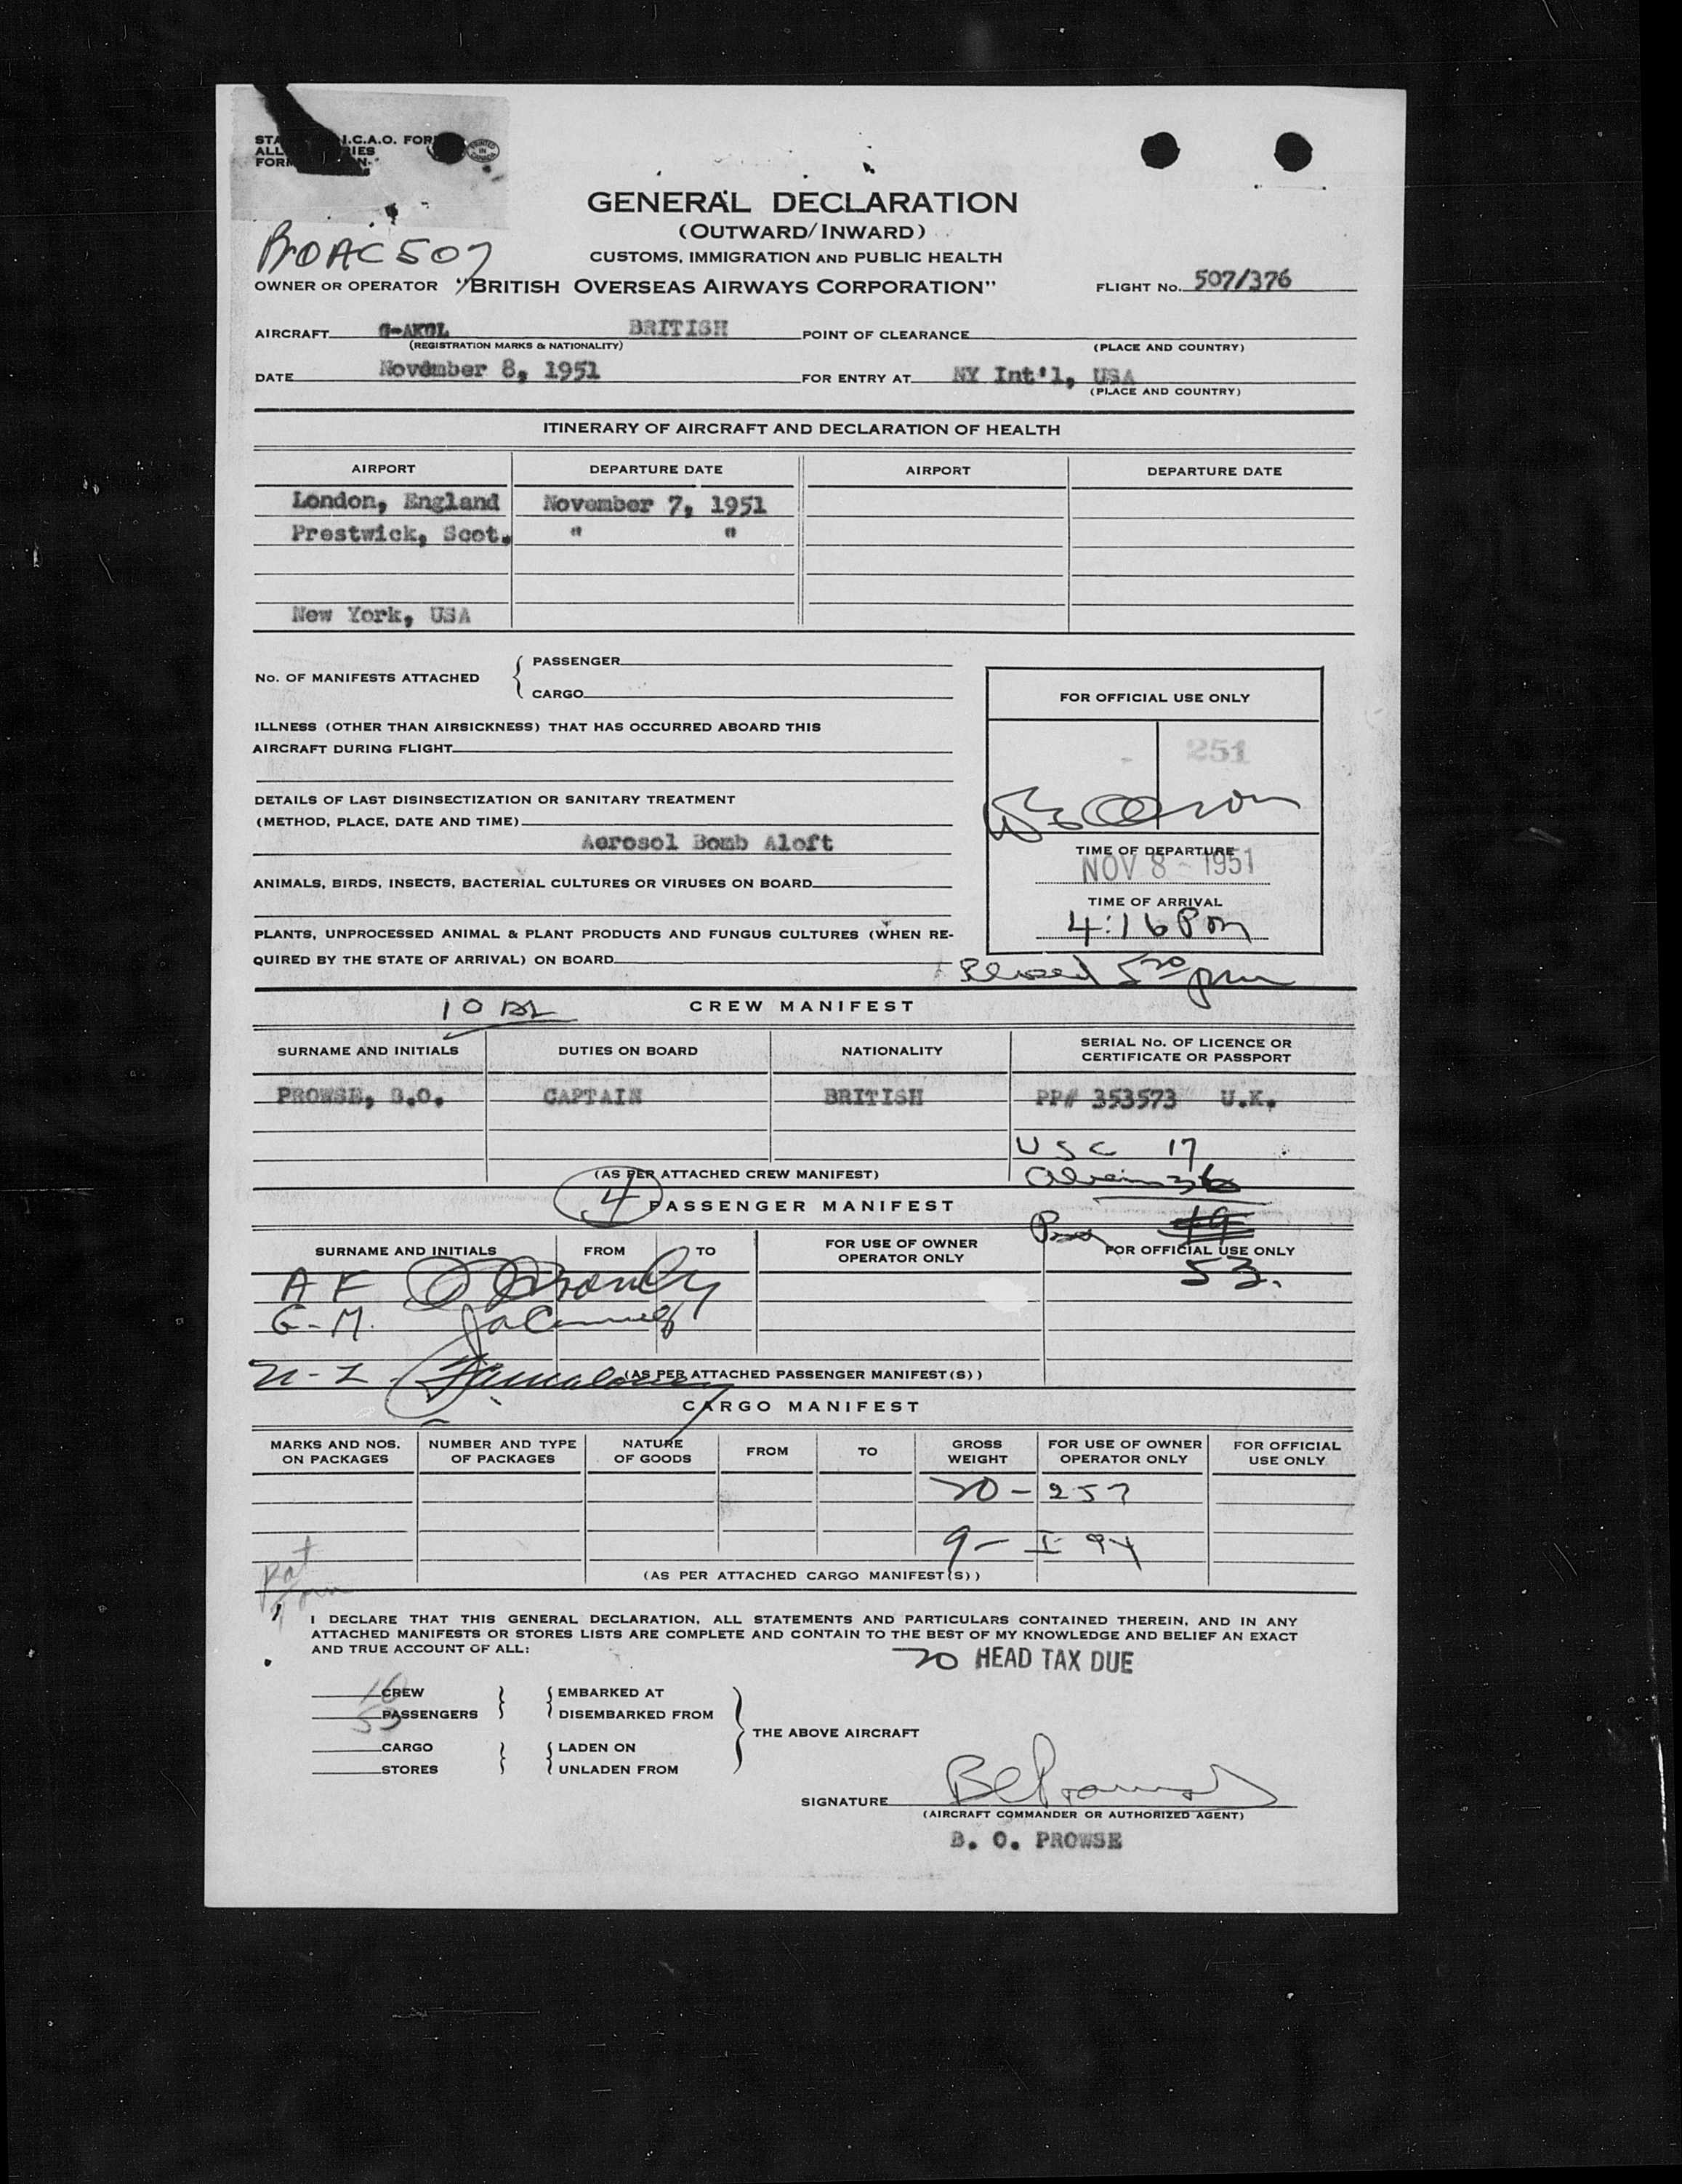 I.C.A.O. FOR
PRINTED IN CANADA
GENERAL DECLARATION
(OUTWARD/INWARD)
CUSTOMS, IMMIGRATION AND PUBLIC HEALTH
BOAC 507
OWNER OR OPERATOR "BRITISH OVERSEAS AIRWAYS CORPORATION" FLIGHT No. 507/376
AIRCRAFT BRITISH POINT OF CLEARANCE
(REGISTRATION MARKS & NATIONALITY) (PLACE AND COUNTRY)
DATE November 8, 1951 FOR ENTRY AT NY Int'l, USA
(PLACE AND COUNTRY)
ITINERARY OF AIRCRAFT AND DECLARATION OF HEALTH
AIRPORT DEPARTURE DATE AIRPORT DEPARTURE DATE
London, England November 7, 1951
Prestwick, Scot. " "
New York, USA
No. OF MANIFESTS ATTACHED { PASSENGER
CARGO
FOR OFFICIAL USE ONLY
ILLNESS (OTHER THAN AIRSICKNESS) THAT HAS OCCURRED ABOARD THIS
AIRCRAFT DURING FLIGHT
251
DETAILS OF LAST DISINSECTIZATION OR SANITARY TREATMENT
(METHOD, PLACE, DATE AND TIME)
Aerosol Bomb Aloft
TIME OF DEPARTURE
NOV 8 - 1951
ANIMALS, BIRDS, INSECTS, BACTERIAL CULTURES OR VIRUSES ON BOARD
TIME OF ARRIVAL
4:16 Pm
PLANTS, UNPROCESSED ANIMAL & PLANT PRODUCTS AND FUNGUS CULTURES (WHEN RE-
QUIRED BY THE STATE OF ARRIVAL) ON BOARD
pm
10
CREW MANIFEST
SURNAME AND INITIALS DUTIES ON BOARD NATIONALITY SERIAL No. OF LICENCE OR
CERTIFICATE OR PASSPORT
PROWSE, B.O. CAPTAIN BRITISH PP# 353573 U.K.
USC 17
(AS PER ATTACHED CREW MANIFEST)
4 PASSENGER MANIFEST
SURNAME AND INITIALS FROM TO FOR USE OF OWNER
OPERATOR ONLY FOR OFFICIAL USE ONLY
53.
A F
G-M.
(AS PER ATTACHED PASSENGER MANIFEST(S))
CARGO MANIFEST
MARKS AND NOS.
ON PACKAGES NUMBER AND TYPE
OF PACKAGES NATURE
OF GOODS FROM TO GROSS
WEIGHT FOR USE OF OWNER
OPERATOR ONLY FOR OFFICIAL
USE ONLY
20 - 257
9 - I-94
(AS PER ATTACHED CARGO MANIFEST(S))
I DECLARE THAT THIS GENERAL DECLARATION, ALL STATEMENTS AND PARTICULARS CONTAINED THEREIN, AND IN ANY
ATTACHED MANIFESTS OR STORES LISTS ARE COMPLETE AND CONTAIN TO THE BEST OF MY KNOWLEDGE AND BELIEF AN EXACT
AND TRUE ACCOUNT OF ALL:
20 HEAD TAX DUE
CREW EMBARKED AT
53 PASSENGERS DISEMBARKED FROM
THE ABOVE AIRCRAFT
CARGO LADEN ON
STORES UNLADEN FROM
SIGNATURE
(AIRCRAFT COMMANDER OR AUTHORIZED AGENT)
B. O. PROWSE